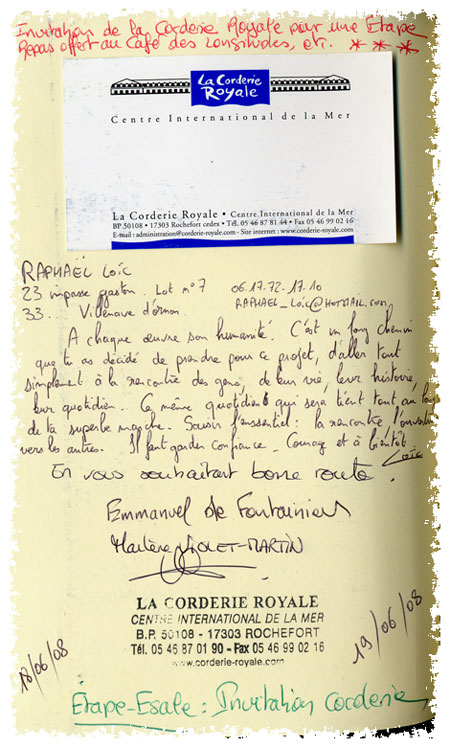 Invitation de la Corderie Royale pour une Étape
Repas offert au Café des Longitudes, etc. ***
La Corderie
Royale
Centre International de la Mer
La Corderie Royale • Centre International de la Mer
BP.50108 • 17303 Rochefort cedex • Tél. 05 46 87 81 44 • Fax 05 46 99 02 16
E-mail : administration@corderie-royale.com - Site internet : www.corderie-royale.com
RAPHAËL Loïc
23 impasse gaston. Lot n°7 06.17.72.17.10
33. Villenave d'Ornon. RAPHAEL_LOIC@HOTMAIL.com
A chaque œuvre son humanité. C'est un long chemin
que tu as décidé de prendre pour ce projet, d'aller tout
simplement à la rencontre des gens, de leur vie, leur histoire,
leur quotidien. Ce même quotidien qui sera tient tout au long
de ta superbe marche. Savoir l'essentiel : la rencontre, l'ouverture
vers les autres. Il faut garder confiance. Courage et à bientôt
Loïc
En vous souhaitant bonne route.
Emmanuel de Fontainieu
Marlène VIOLET-MARTIN
LA CORDERIE ROYALE
CENTRE INTERNATIONAL DE LA MER
B.P. 50108 - 17303 ROCHEFORT
Tél. 05 46 87 01 90 - Fax 05 46 99 02 16
www.corderie-royale.com
18/06/08
19/06/08
Étape-Escale : Invitation Corderie